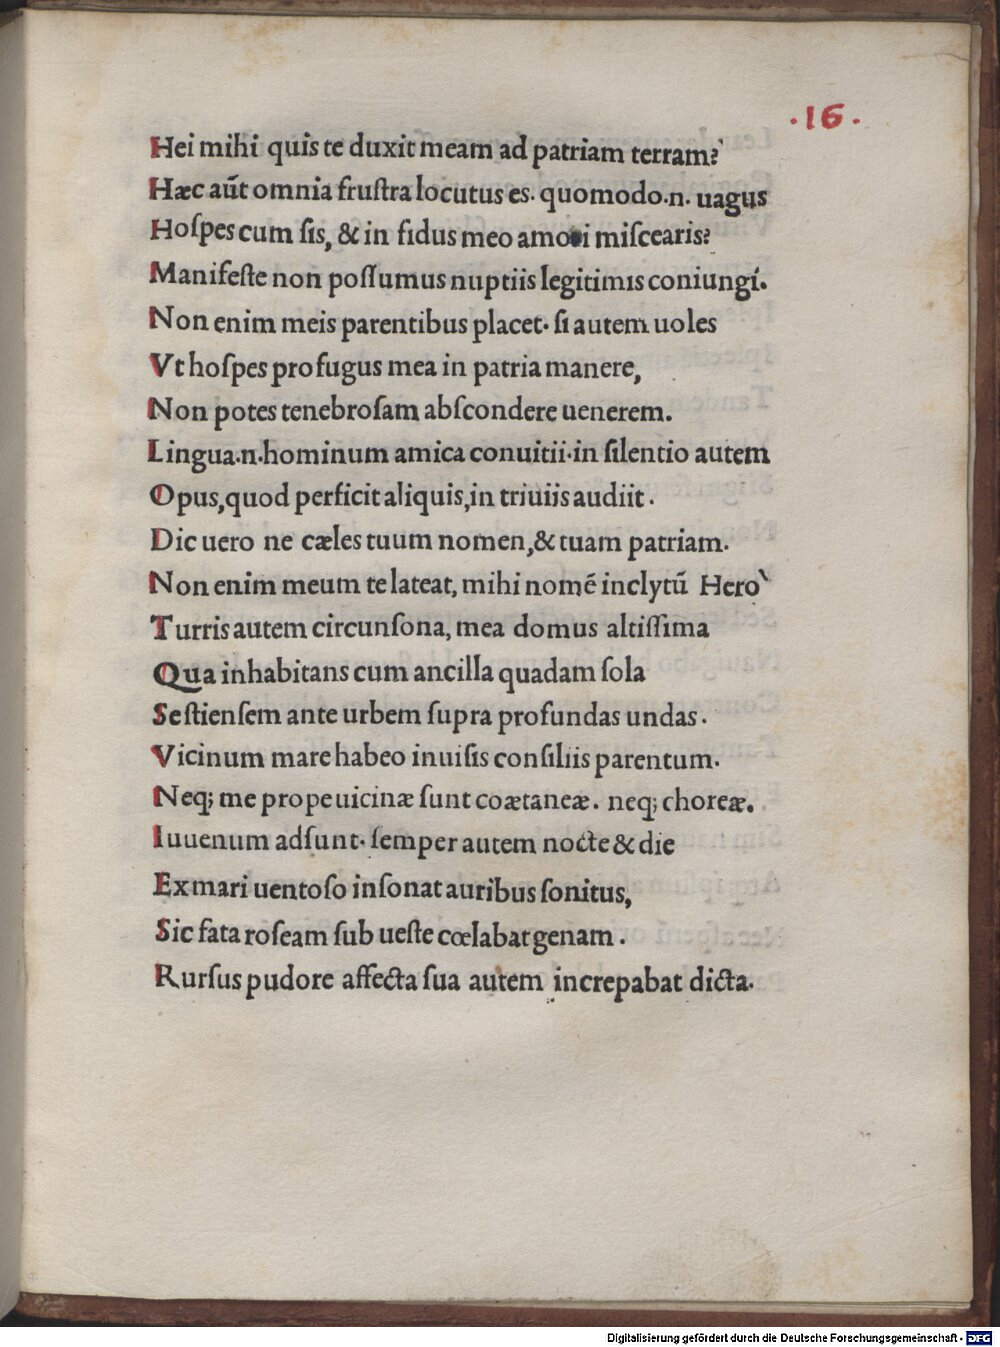 ·16·
Hei mihi quis te duxit meam ad patriam terram?
Hæc aūt omnia frustra locutus es. quomodo.n. uagus
Hoſpes cum ſis, & in fidus meo amori miſcearis?
Manifeſte non poſſumus nuptiis legitimis coniungí.
Non enim meis parentibus placet· ſi autem uoles
Vt hoſpes profugus mea in patria manere,
Non potes tenebroſam abſcondere uenerem.
Lingua.n.hominum amica conuitii·in ſilentio autem
Opus,quod perficit aliquis,in triuiis audiit.
Dic uero ne cæles tuum nomen,& tuam patriam.
Non enim meum te lateat, mihi nomē inclytū Hero
Turris autem circunſona, mea domus altiſſima
Qua inhabitans cum ancilla quadam ſola
Seſtienſem ante urbem ſupra profundas undas.
Vicinum mare habeo inuiſis conſiliis parentum.
Neq; me prope uicinæ ſunt coætaneæ. neq; choreæ.
Iuuenum adſunt· ſemper autem nocte & die
Ex mari uentoſo inſonat auribus ſonitus,
Sic fata roſeam ſub ueſte cœlabat genam.
Rurſus pudore affecta ſua autem increpabat dicta.
Digitalisierung gefördert durch die Deutsche Forschungsgemeinschaft - DFG